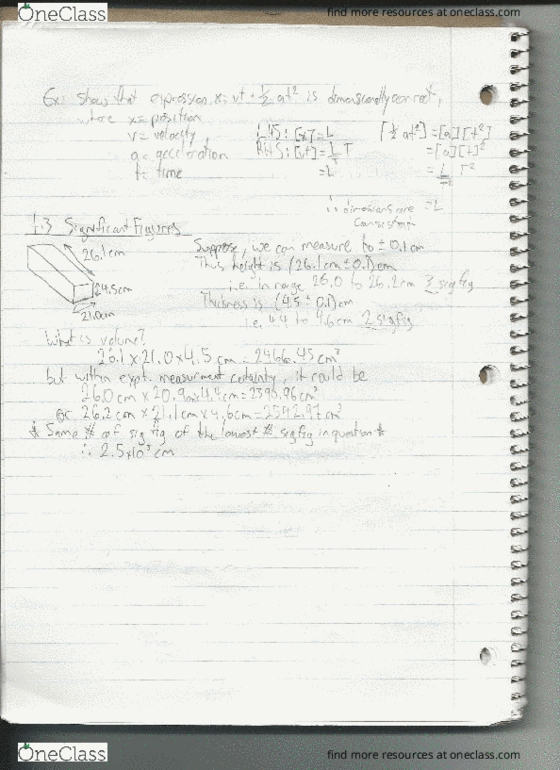 OneClass
find more resources at oneclass.com
Ex: show that expression x = vt + 1/2 at² is dimensionally correct,
where x = position
v = velocity,
a = acceleration
t = time
LHS: [x] = L
RHS: [vt] = L/T T
= L
[1/2 at²] = [a][t²]
= [a][t]²
= L/T² T²
= L
∴ dimensions are
consistent
1.3 Significant Figures
26.1cm
4.5cm
21.0cm
Suppose, we can measure to ± 0.1 cm
Thus height is (26.1cm ± 0.1)cm
i.e. in range 26.0 to 26.2cm 3 sig fig
Thickness is (4.5 ± 0.1)cm
i.e. 4.4 to 4.6cm 2 sig fig
What is volume?
26.1 x 21.0 x 4.5 cm = 2466.45 cm³
but within expt. measurment certainty, it could be
26.0 cm x 20.9 x 4.4 cm = cm³
or 26.2 cm x 21.1cm x 4.6cm = cm³
* Same # of sig fig of the lowest # sig fig in question *
∴ 2.5x10³ cm
OneClass
find more resources at oneclass.com